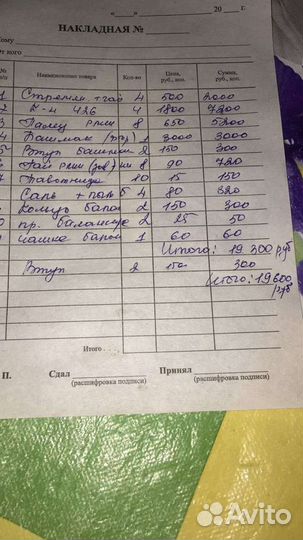 « » 20 г.
НАКЛАДНАЯ №
Кому
От кого
№ п/п Наименование товара Кол-во Цена, руб., коп. Сумма, руб., коп.
1 Стремян. + гай 4 500 2000
2 426 4 1800 7200
3 Палец рпш 8 650 5200
4 Башмак 3000 3000
5 Втул башмак 2 150 300
6 рпш 8 90 720
7 10 15 150
4 80 320
Кольцо балан 2 150 300
пр. балансир 2 25 50
балан 1 60 60
Итого: 19 300 руб
Втул 2 150 300
Итого: 19600 руб
Итого
П. Сдал Принял
(расшифровка подписи) (расшифровка подписи)
Avito